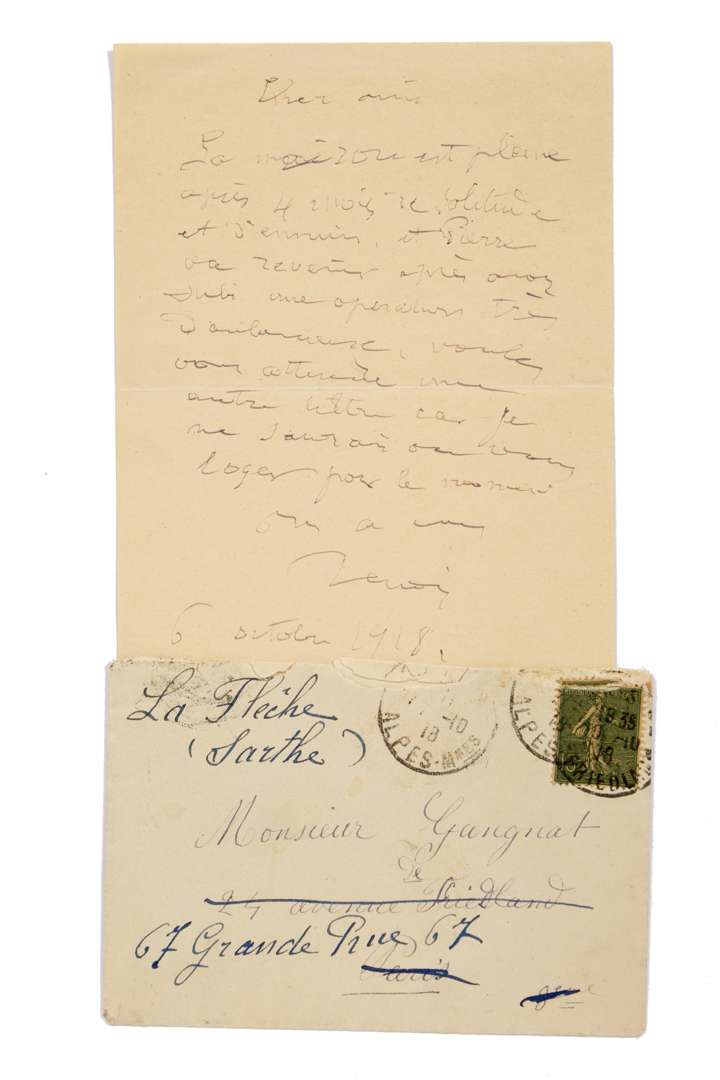 Cher ami
La maison est pleine
après 4 mois de solitude
et d'ennuis, et Pierre
va revenir après avoir
subi une operation très
Douloureuse, voulez
vous attendre une
autre lettre car je
ne saurais ou vous
loger pour le moment
a vous
Renoir
6 octobre 1918.
La Flèche
(Sarthe)
-10
18
ALPES-Mmes
18 35
-10
18
ALPES-M
Monsieur Gangnat
de
24 avenue Friedland
67 Grande Rue, 67
Paris